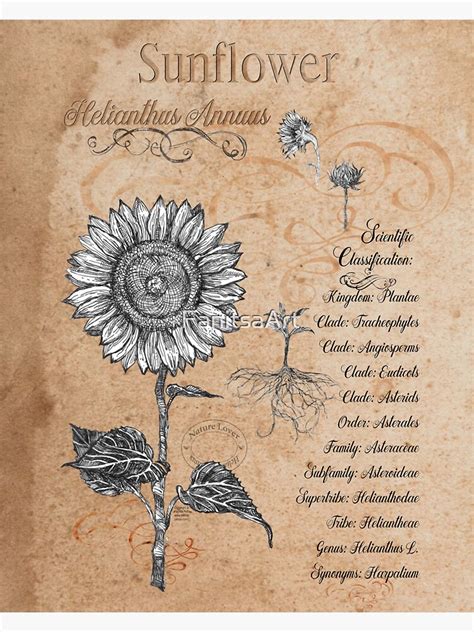 Sunflower
Helianthus Annuus
Scientific
Classification:
Kingdom: Plantae
Clade: Tracheophytes
Clade: Angiosperms
Clade: Eudicots
Clade: Asterids
Order: Asterales
Family: Asteraceae
Subfamily: Asteroideae
Supertribe: Helianthodae
Tribe: Heliantheae
Genus: Helianthus L.
Synonyms: Harpalium
Nature Lover